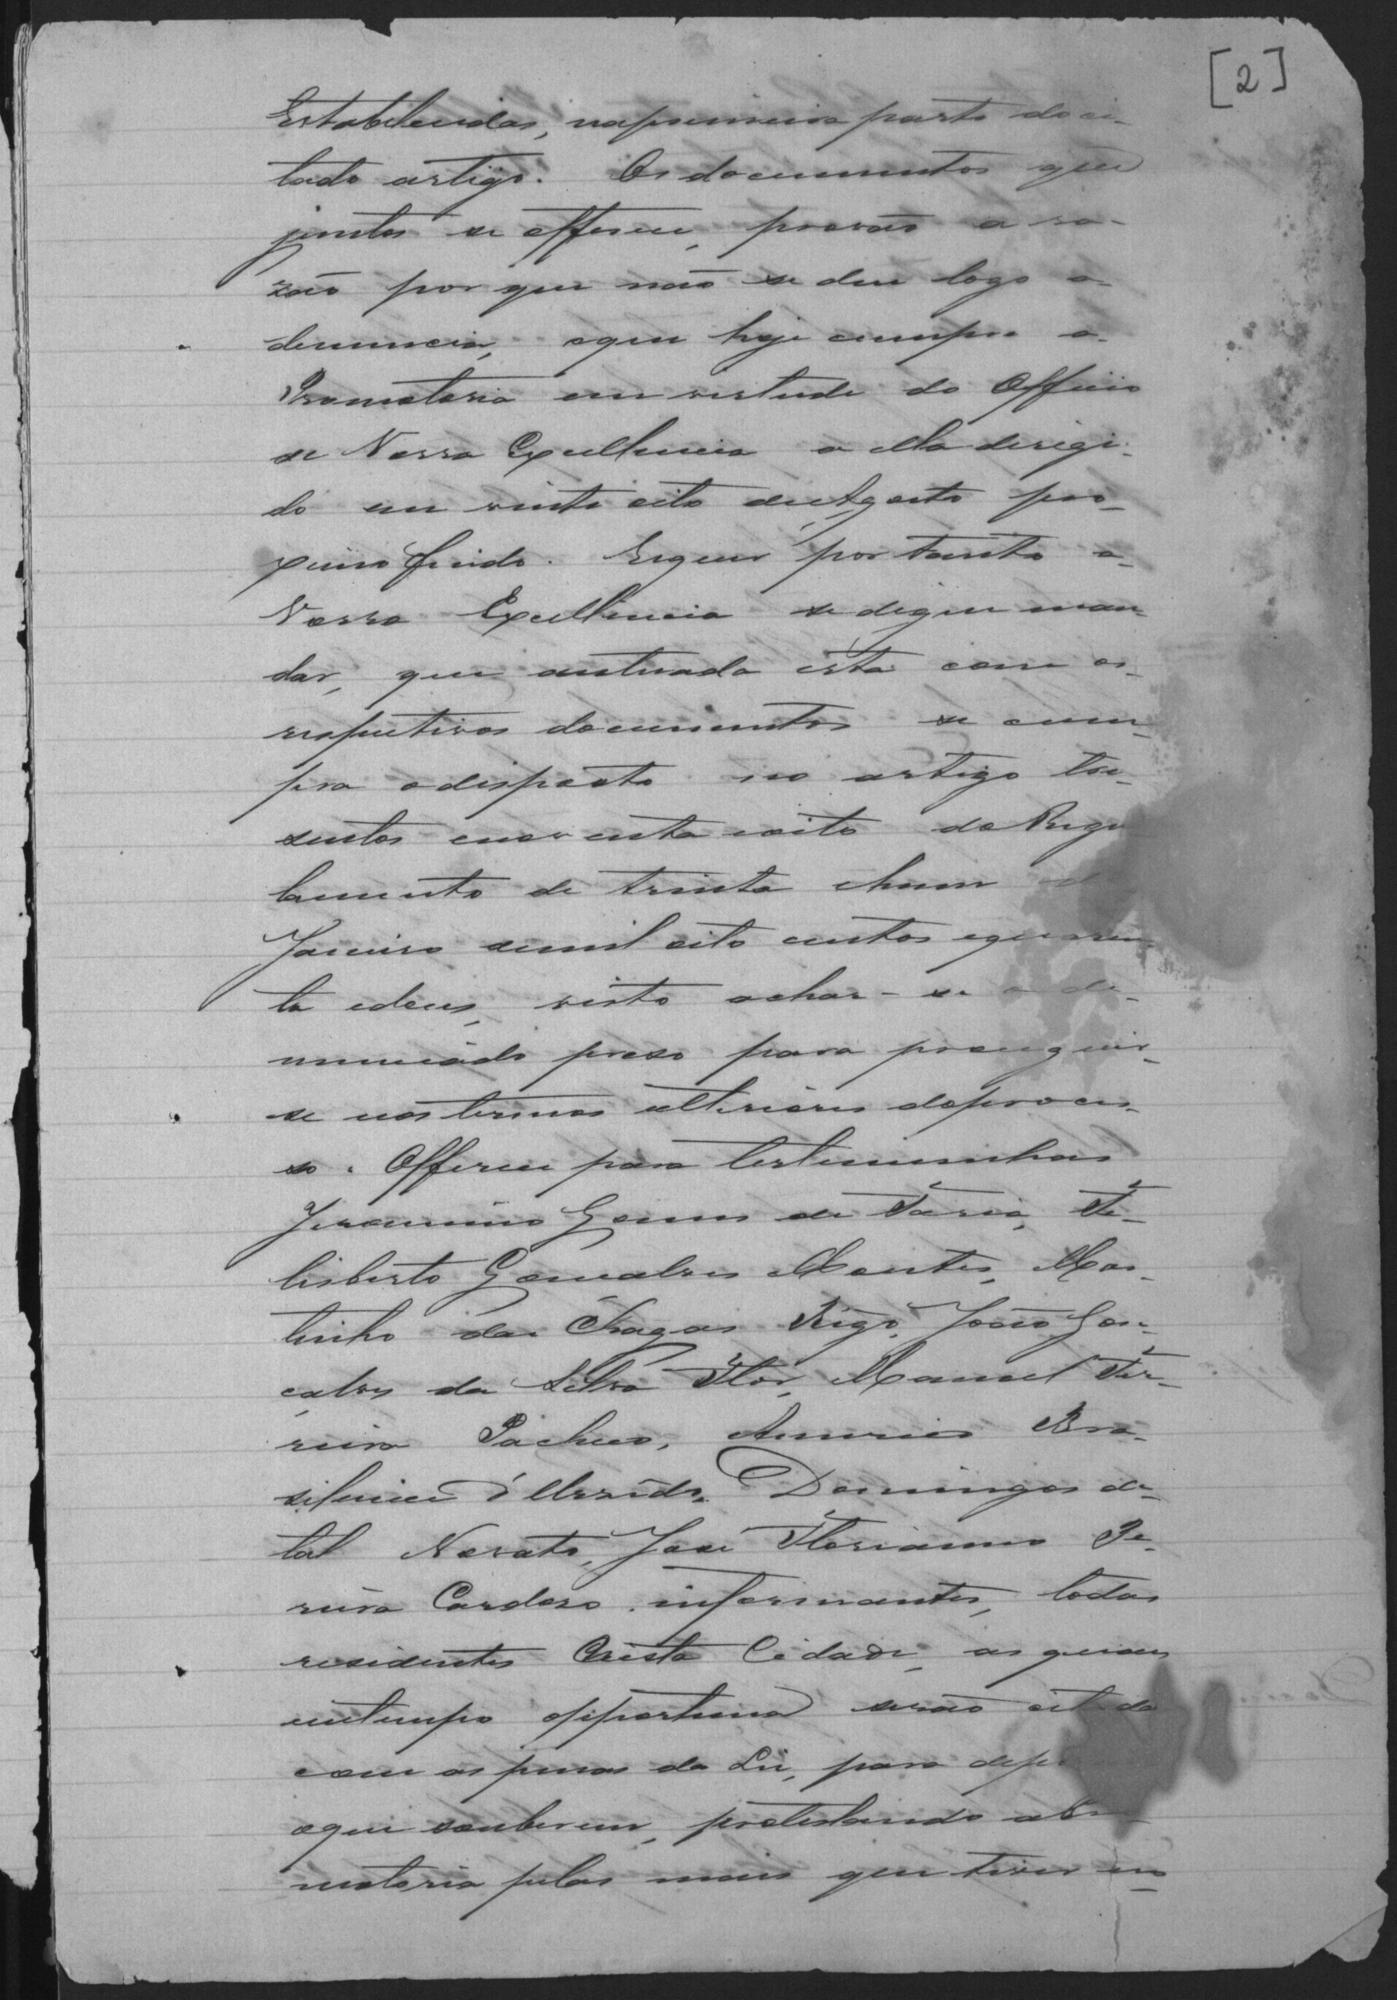 [2]
Estabelecidas, na primeira parte do ci-
tado artigo. Os documentos que
juntos se offerece, provão a ra-
zão por que não se deu logo a
denuncia, o que hoje cumpre a
Promotoria em virtude do Officio
de Vossa Excellencia a ella derigi-
do em vinte oito de Agosto pro-
ximo findo. Requer por tanto a
Vossa Excellencia se digne man-
dar, que autuada esta com os
respectivos documentos se cum-
pra o disposto no artigo tre-
sentos e noventa e oito do Regu
lamento de trinta e hum
Janeiro de mil oito centos e quaren
ta e dous, visto achar-se o de-
nunciado preso para proceguir-
se nos termos ulteriores do proces-
so. Offerece para testemunhas
Jeronimo Gomes de Faria, Fe-
lisberto Gonçalves Montes, Mar-
tinho das Chagas Rego, João Gon-
çalves da Silva Flôr, Manoel Fer-
reira Pacheco, Americo Bra-
silense d'Almeida, Domingos de
tal Norato, José Florianno Pe-
reira Cardoso informantes, todos
residentes n'esta Cidade, as quaes
em tempo opportuno serão citada
com as penas da Lei, para depo
o que souberem, protestando a Pro
motoria pelas mais que tiver em